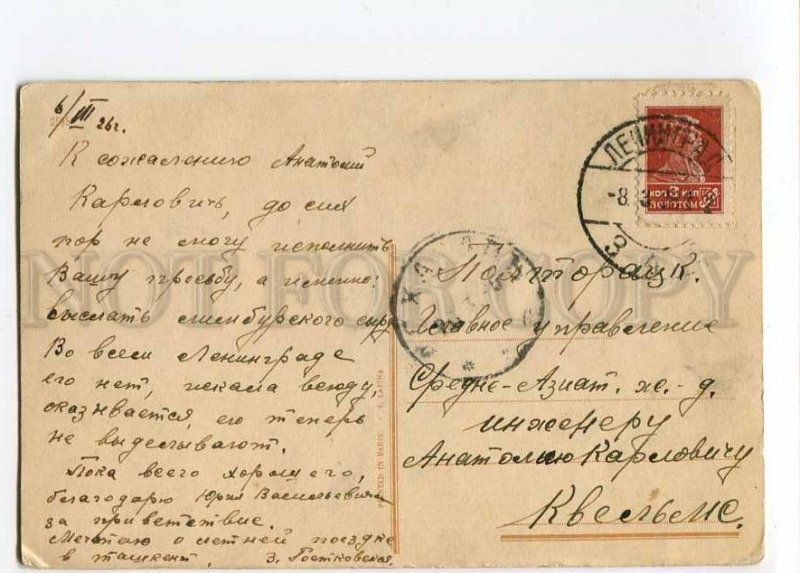 6/III 26 г.
К сожалению Анатолий
Карлович, до сих
пор не могу исполнить
Вашу просьбу, а именно:
выслать лимбургского сыра
Во всем Ленинграде
его нет, искала всюду,
оказывается, его теперь
не выделывают.
Пока всего хорошего,
благодарю Юрия Васильевича
за приветствие.
Мечтаю о летней поездке
в Ташкент, З. Гостковская.
PRINTED IN PARIS - I. LAPINA
ЛЕНИНГРАД
-8.3.
КОП 3 КОП
ЗОЛОТОМ
Полторацк.
Главное управление
Средне-Азиат. ж.-д.
инженеру
Анатолию Карловичу
Квельмс.
NOT FOR COPY